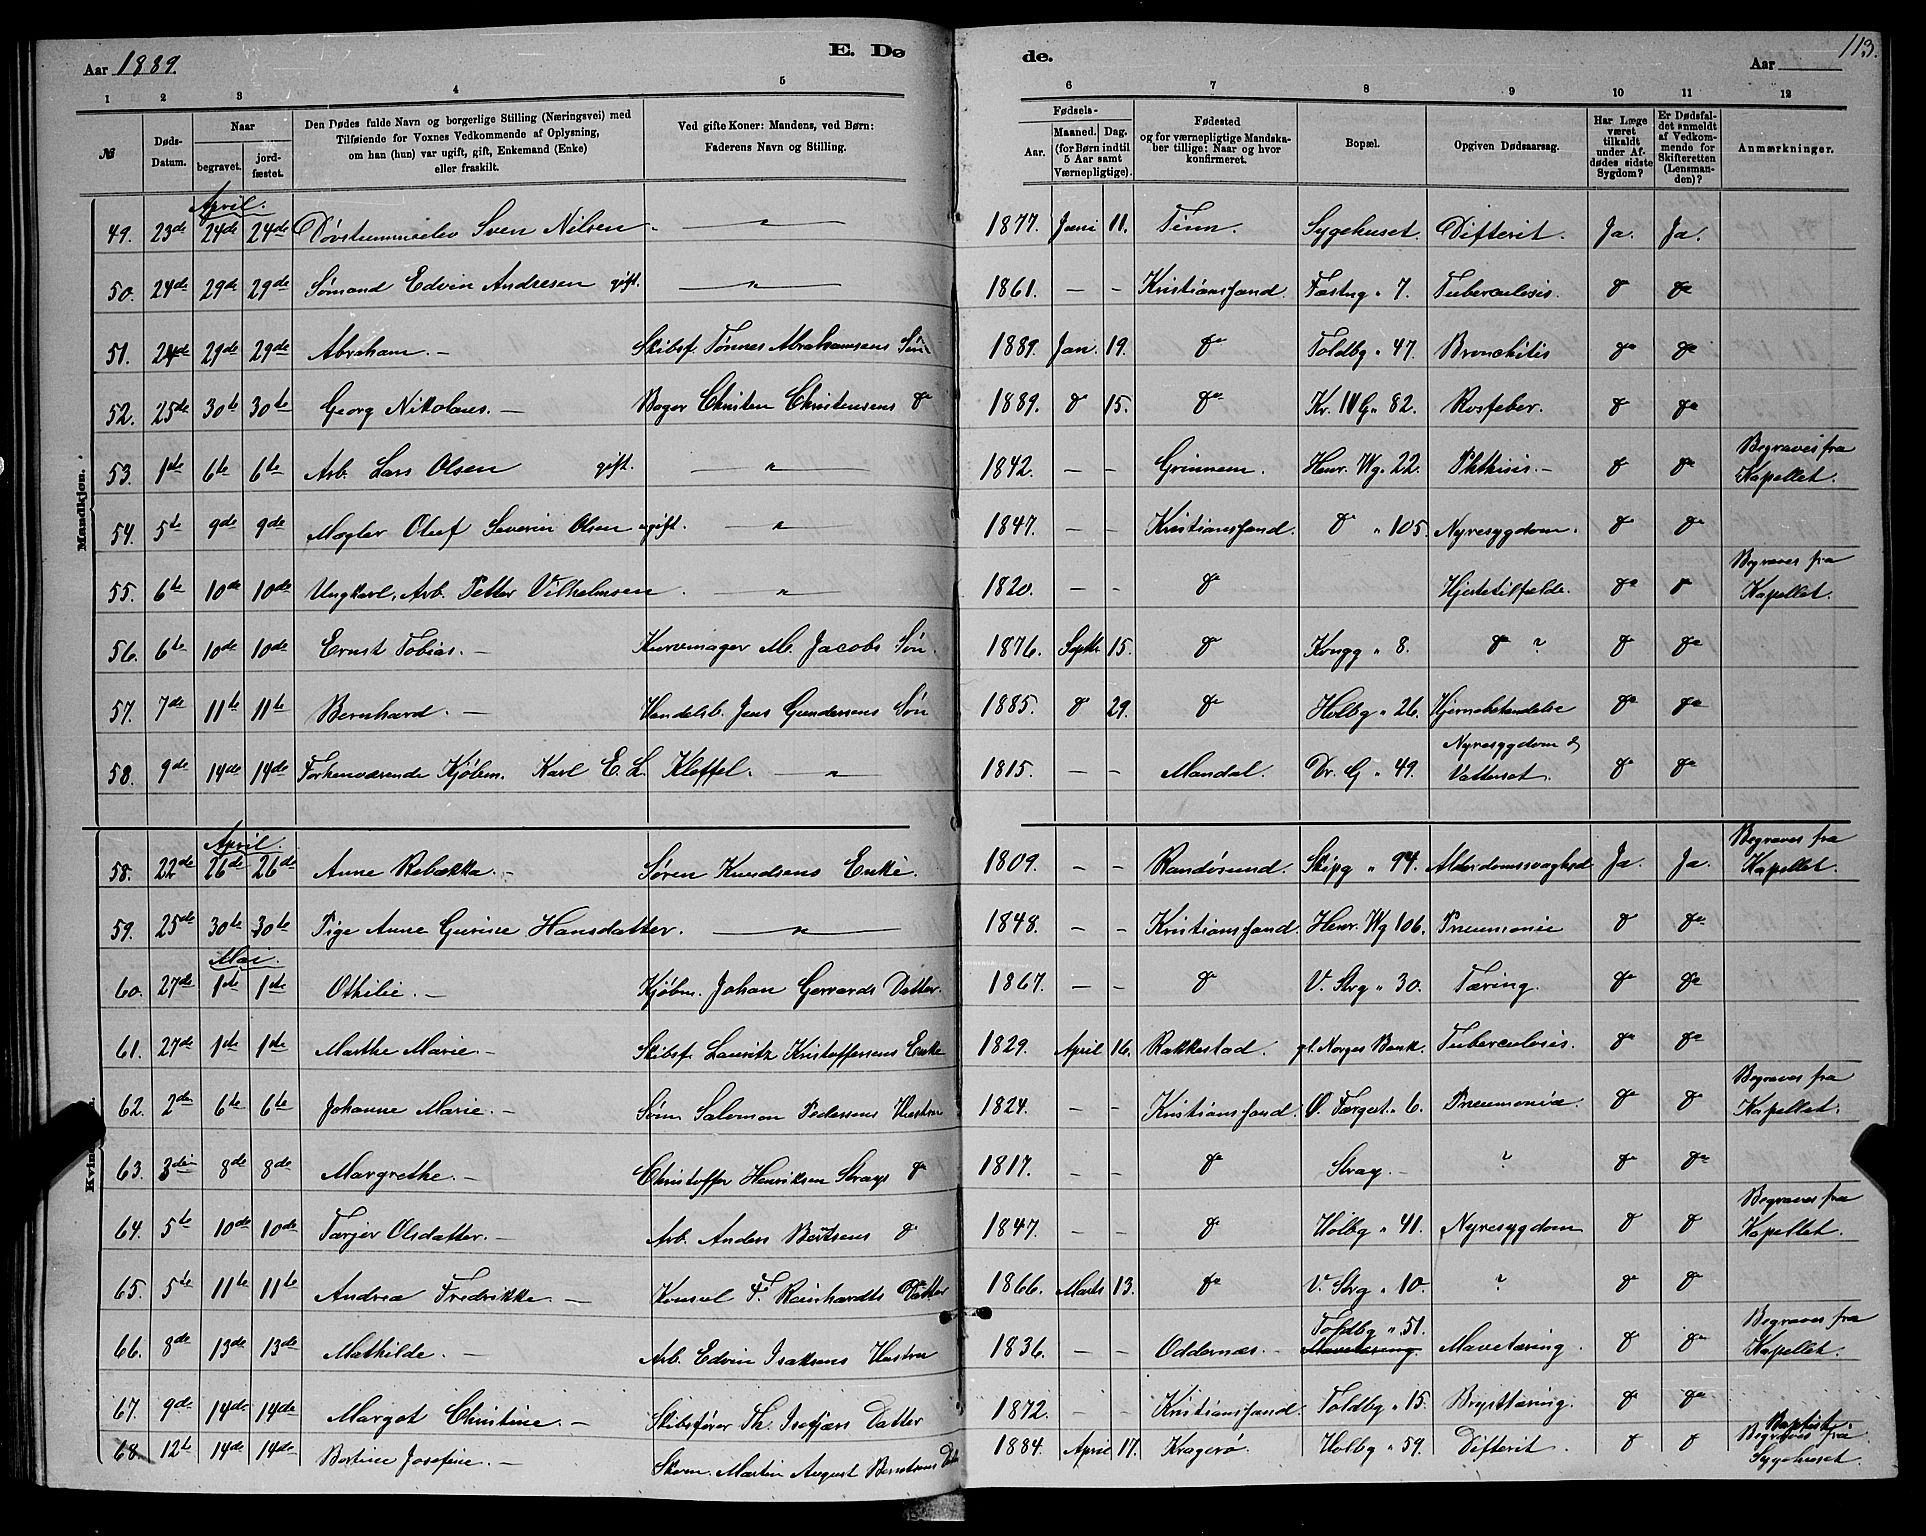 Aar 1889.
E. Dø
de.
113.
Aar
1 2 3 4 5
6 7 8 9 10 11 12
№
Døds-Datum.
Naar
begravet.
jord-fæstet.
Den Dødes fulde Navn og borgerlige Stilling (Næringsvei) med
Tilføiende for Voxnes Vedkommende af Oplysning,
om han (hun) var ugift, gift, Enkemand (Enke)
eller fraskilt.
Ved gifte Koner: Mandens, ved Børn:
Faderens Navn og Stilling.
Fødsels-
Aar.
Maaned. Dag.
(for Børn indtil
5 Aar samt
Værnepligtige).
Fødested
og for værnepligtige Mandska-
ber tillige: Naar og hvor
konfirmeret.
Bopæl.
Opgiven Dødsaarsag.
Har Læge
været
tilkaldt
under Af-
dødes sidste
Sygdom?
Er Dødsfal-
det anmeldt
af Vedkom-
mende for
Skifteretten
(Lensman-
den)?
Anmærkninger.
Mandkjøn.
April.
49. 23de 24de 24de Døvstummelev Sven Nilsen. — " — 1877. Juni 11. Tinn. Sygehuset. Difterit. Ja. Ja.
50. 24de 29de 29de Sømand Edvin Andresen gift. — " — 1861. — — Kristianssand. Fæstng " 7. Tuberculosis. do do
51. 24de 29de 29de Abraham. — Skibsf. Tønnes Abrahamsens Søn 1889. Jan. 19. do Toldbg " 47. Bronchitis do do
52. 25de 30te 30te Georg Nikolaus. — Bager Christen Christensens do 1889. do 15. do Kr. IV G. " 82. Rosfeber. do do
53. 1ste 6te 6te Arb. Lars Olsen gift. — " — 1842. — — Grimnem. Henr. Wg. 22. Phthisis. — do do Begraves fra
Kapellet.
54. 5te 9de 9de Mægler Oluf Severin Olsen ugift. — " — 1847. — — Kristianssand. do " 105. Nyresygdom. do do
55. 6te 10de 10de Ungkarl, Arb. Petter Vilhelmsen. — " — 1820. — — do Hjertetilfælde. do do Begraves fra
Kapellet.
56. 6te 10de 10de Ernst Tobias. — Kurvemager M. Jacobs Søn. 1876. Septb. 15. do Kongg " 8. do ? do do
57. 7de 11te 11te Bernhard. — Handelsb. Jens Gundersens Søn 1885. do 29. do Holbg " 26. Hjernebetændelse do do
58. 9de 14de 14de Forhenværende Kjøbm. Karl E. L. Kleffel. — " — 1815. — — Mandal. Dr. G " 49. Nyresygdom &
Vattersot. do do
Kvin
April.
58. 22de 26de 26de Anne Rebækka. — Søren Knudsens Enke. 1809. — — Randøsund. Skipg " 94. Alderdomssvaghed Ja. Ja. Begraves fra
Kapellet.
59. 25de 30te 30te Pige Anne Gurine Hansdatter. — " — 1848. — — Kristianssand. Henr. Wg 106. Pneumonie do do
Mai.
60. 27de 1ste 1ste Othilie. — Kjøbm. Johan Gerrards Datter. 1867. — — do V. Strg " 30. Tæring. do do
61. 27de 1ste 1ste Marthe Marie. — Skibsf. Lauritz Kristoffersens Enke 1829. April 16. Rakkestad. gl. Norges Bank. Tuberculosis. do do
62. 2de 6te 6te Johanne Marie. — Søm. Salomon Pedersens Hustru 1824. — — Kristianssand. Ø. Færgest. " 6. Pneumonie. do do Begraves fra
Kapellet.
63. 3die 8de 8de Margrethe. — Christoffer Henriksen Strays do 1817. — — do Stray. — ? do do
64. 5te 10de 10de Tarjer Olsdatter. — Arb. Anders Bertsens do 1847. — — do Holbg " 41. Nyresygdom do do Begraves fra
Kapellet.
65. 5te 11te 11te Andrea Fredrikke. — Konsul F. Reinhardts Datter 1866. Marts 13. do V. Strg " 10. ? do do
66. 8de 13de 13de Mathilde. — Arb. Edvin Isaksens Hustru 1836. — — Oddernæs. — Toldbg " 51.
Mavetæring. Mavetæring. do do Begraves fra
Kapellet.
67. 9de 14de 14de Margot Christine. — Skibsfører Th. Isefjærs Datter 1872. — — Kristianssand. Toldbg " 15. Brysttæring. do do
68. 12te 14de 14de Bertine Josefine. — Skom. Martin August Berntsens Datt 1884. April 17. Kragerø. Holbg " 59. Difterit. do do Baptist.
Begraves fra
Sygehuset.